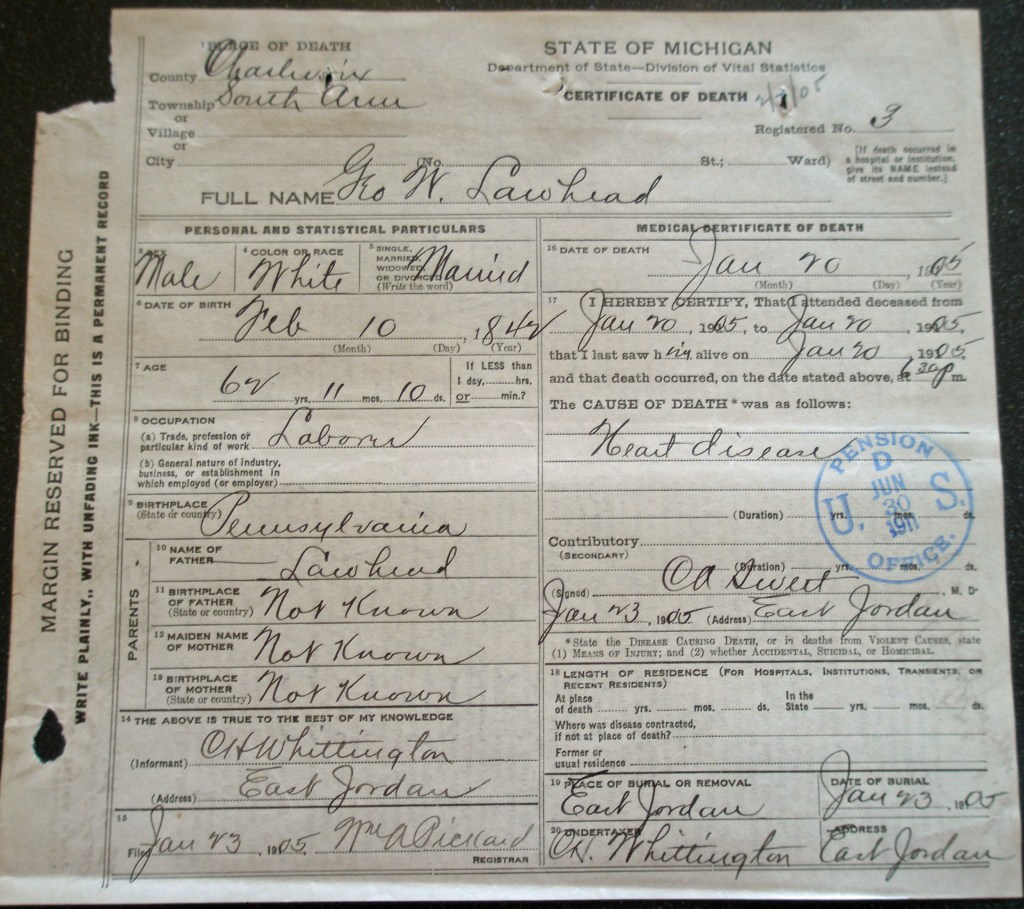 PLACE OF DEATH
County Charlevoix
Township South Arm
or
Village
or
City (No. St.; Ward)
STATE OF MICHIGAN
Department of State—Division of Vital Statistics
CERTIFICATE OF DEATH
Registered No. 3
[If death occurred in a hospital or institution, give its NAME instead of street and number.]
FULL NAME Geo W. Lawhead
MARGIN RESERVED FOR BINDING
WRITE PLAINLY, WITH UNFADING INK—THIS IS A PERMANENT RECORD
PERSONAL AND STATISTICAL PARTICULARS
3 SEX Male
4 COLOR OR RACE White
5 SINGLE, MARRIED, WIDOWED, OR DIVORCED (Write the word) Married
6 DATE OF BIRTH Feb 10, 1842
(Month) (Day) (Year)
7 AGE 62 yrs. 11 mos. 10 ds.
If LESS than
1 day, hrs.
or min.?
8 OCCUPATION
(a) Trade, profession or particular kind of work Laborer
(b) General nature of industry, business, or establishment in which employed (or employer)
9 BIRTHPLACE
(State or country) Pennsylvania
PARENTS
10 NAME OF FATHER Lawhead
11 BIRTHPLACE OF FATHER (State or country) Not Known
12 MAIDEN NAME OF MOTHER Not Known
13 BIRTHPLACE OF MOTHER (State or country) Not Known
14 THE ABOVE IS TRUE TO THE BEST OF MY KNOWLEDGE
(Informant) CH Whittington
(Address) East Jordan
15
Filed Jan 23, 1905 Wm A Pickard
REGISTRAR
MEDICAL CERTIFICATE OF DEATH
16 DATE OF DEATH Jan 20, 1905
(Month) (Day) (Year)
17 I HEREBY CERTIFY, That I attended deceased from
Jan 20, 1905, to Jan 20, 1905,
that I last saw him alive on Jan 20, 1905,
and that death occurred, on the date stated above, at 630 p m.
The CAUSE OF DEATH* was as follows:
Heart disease
(Duration) yrs. mos. ds.
PENSION
D
JUN
30
1911
U. S.
OFFICE.
Contributory
(SECONDARY)
(Duration) yrs. mos. ds.
(Signed) CA Sweet, M. D.
Jan 23, 1905 (Address) East Jordan
*State the DISEASE CAUSING DEATH, or in deaths from VIOLENT CAUSES, state
(1) MEANS OF INJURY; and (2) whether ACCIDENTAL, SUICIDAL, or HOMICIDAL.
18 LENGTH OF RESIDENCE (FOR HOSPITALS, INSTITUTIONS, TRANSIENTS, OR RECENT RESIDENTS)
At place of death yrs. mos. ds. In the State yrs. mos. ds.
Where was disease contracted, if not at place of death?
Former or usual residence
19 PLACE OF BURIAL OR REMOVAL East Jordan
DATE OF BURIAL Jan 23, 1905
20 UNDERTAKER CH. Whittington
ADDRESS East Jordan